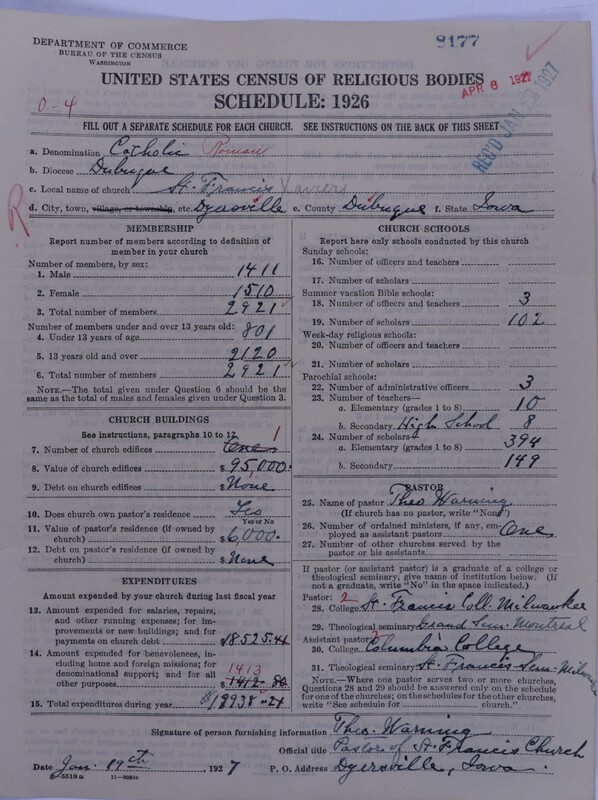 DEPARTMENT OF COMMERCE
BUREAU OF THE CENSUS
WASHINGTON
9177
UNITED STATES CENSUS OF RELIGIOUS BODIES
APR 8 1927
REC'D JAN 22 1927
0-4
SCHEDULE: 1926
FILL OUT A SEPARATE SCHEDULE FOR EACH CHURCH. SEE INSTRUCTIONS ON THE BACK OF THIS SHEET
a. Denomination Catholic Roman
b. Diocese Dubuque
c. Local name of church St. Francis Xavier
R
d. City, town, village, or township, etc. Dyersville e. County Dubuque f. State Iowa
MEMBERSHIP
Report number of members according to definition of
member in your church
Number of members, by sex:
1. Male 1411
2. Female 1510
3. Total number of members 2921
Number of members under and over 13 years old:
4. Under 13 years of age 801
5. 13 years old and over 2120
6. Total number of members 2921
NOTE.—The total given under Question 6 should be
the same as the total of males and females given under Question 3.
CHURCH BUILDINGS
See instructions, paragraphs 10 to 12
7. Number of church edifices One 1
8. Value of church edifices $95,000.
9. Debt on church edifices $ None
10. Does church own pastor's residence? Yes
Yes or No
11. Value of pastor's residence (if owned by
church) $6,000.
12. Debt on pastor's residence (if owned by
church) $ None
EXPENDITURES
Amount expended by your church during last fiscal year
13. Amount expended for salaries, repairs,
and other running expenses; for im-
provements or new buildings; and for
payments on church debt $18525.44
14. Amount expended for benevolences, in-
cluding home and foreign missions; for
denominational support; and for all
1413
other purposes $1412.80
15. Total expenditures during year $19938.24
CHURCH SCHOOLS
Report here only schools conducted by this church
Sunday schools:
16. Number of officers and teachers
17. Number of scholars
Summer vacation Bible schools:
18. Number of officers and teachers 3
19. Number of scholars 102
Week-day religious schools:
20. Number of officers and teachers
21. Number of scholars
Parochial schools:
22. Number of administrative officers 3
23. Number of teachers—
a. Elementary (grades 1 to 8) 10
b. Secondary High School 8
24. Number of scholars—
a. Elementary (grades 1 to 8) 394
b. Secondary 149
PASTOR
25. Name of pastor Theo Warning
(If church has no pastor, write "None")
26. Number of ordained ministers, if any, em-
ployed as assistant pastors One
27. Number of other churches served by the
pastor or his assistants
If pastor (or assistant pastor) is a graduate of a college or
theological seminary, give name of institution below. (If
not a graduate, write "No" in the space indicated.)
Pastor: 2
28. College St. Francis Coll. Milwaukee
29. Theological seminary Grand Sem. Montreal
Assistant pastor:
30. College Columbia College
31. Theological seminary St. Francis Sem. Milwaukee
NOTE.—Where one pastor serves two or more churches,
Questions 28 and 29 should be answered only on the schedule
for one of the churches; on the schedules for the other churches,
write "See schedule for church."
Signature of person furnishing information Theo. Warning
Official title Pastor of St. Francis Church
Date Jan. 19th, 1927 P. O. Address Dyersville, Iowa.